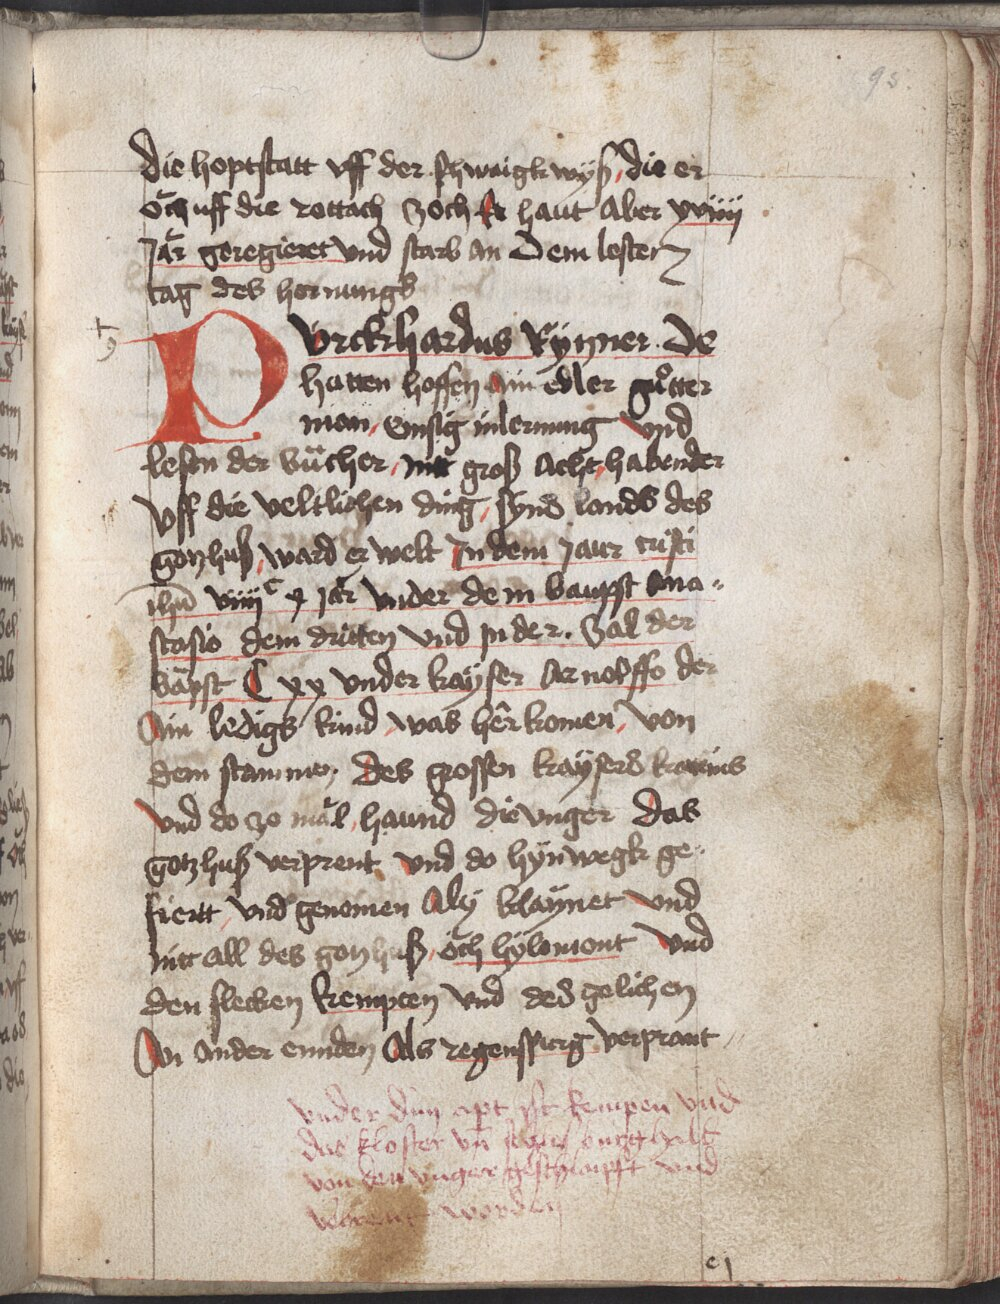 95.
die hoptstatt vff der schwaigk wyß, die er
och uff die rottach zoch haut Aber xviiij
Jar geregieret vnd starb an dem lesten
tag des hornungs
Burckhardus Rynner. De
hatten hoffen Ain edler gůtter
man, emsig inlernung vnd
lesen der bücher, nitt groß Acht habender
vff die veltlichen ding, synd lands des
gotzhuß, ward er welt Jn dem Jaur cristi
ihū viiij c Jar vnder dem baupst Ana-
stasio dem dritten vnd jn der. Zal der
bäpst C xx vnder kayser Arnolffo der
Ain ledigs kind, was her komen, von
dem stammen, des grossen kaysers
vnd do zo mal, haund die vnger das
gotzhuß verprent vnd do hyn wegk ge-
fiertt, vnd genomen Aly klaynet vnd
mitt all des gotzhuß, och hylomont vnd
den flecken kempten vnd des gelichen
An ander ennden Als regenspurg verprant
vnder dem apt ist kempen vnd
das kloster vn̄
von den vnger geschlaipft vnd
verprent worden